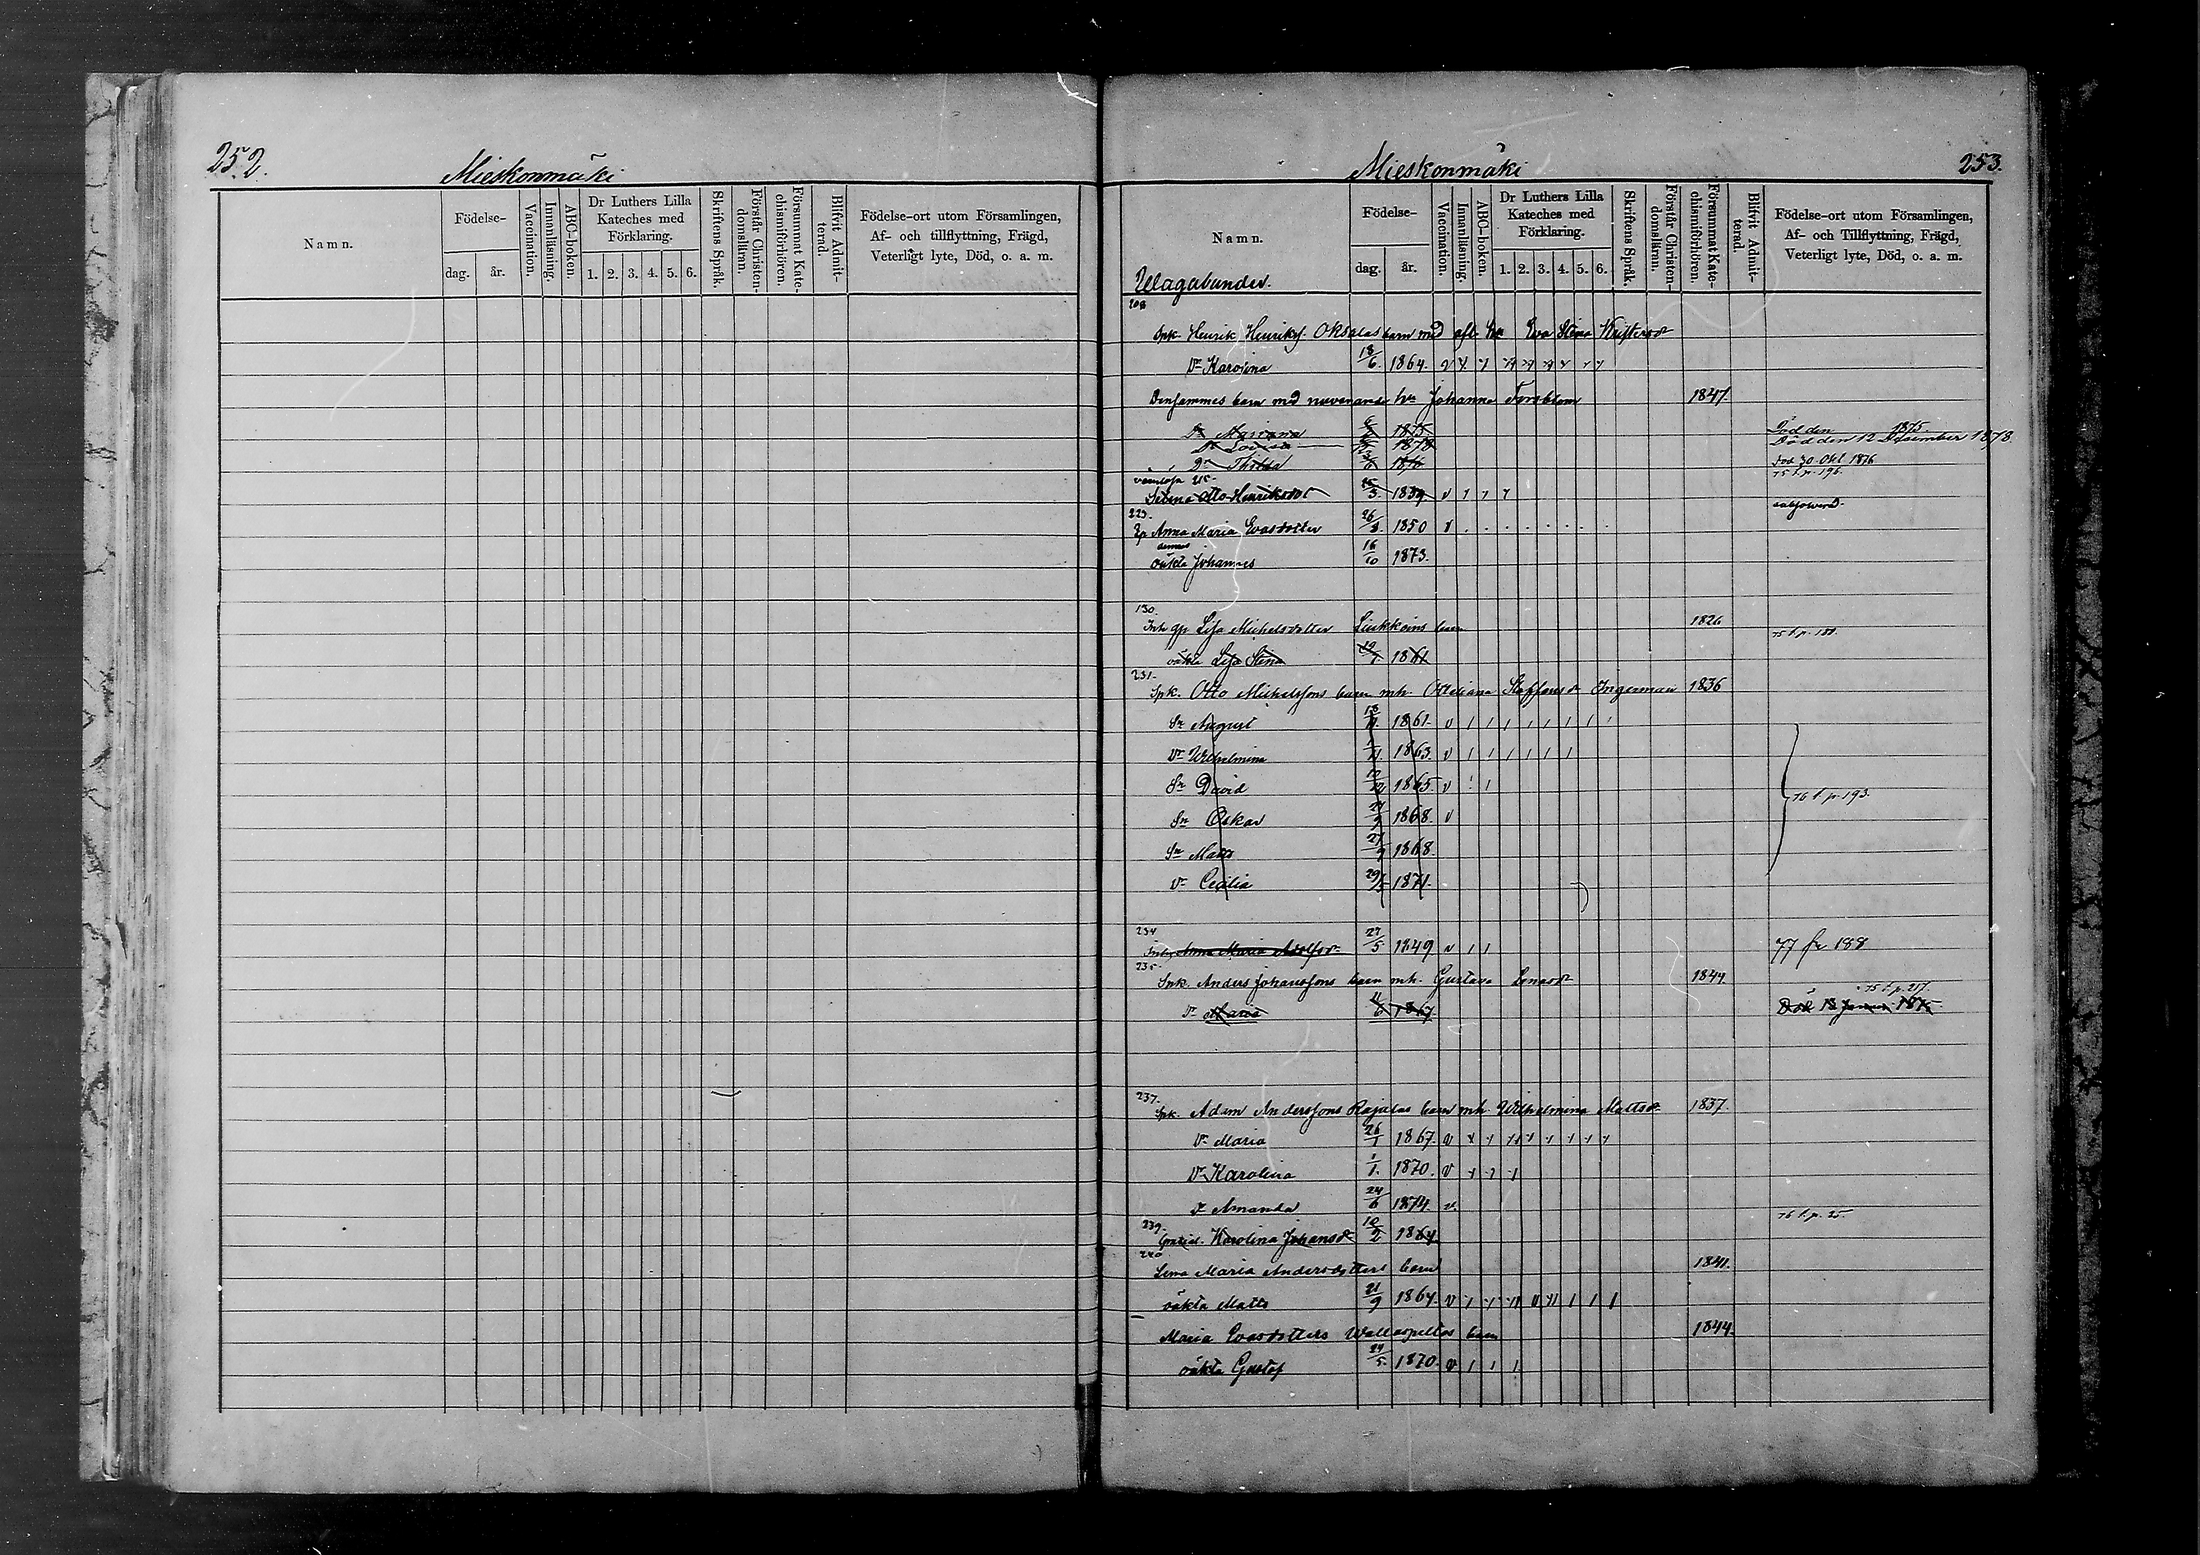 252.
Mieskonmäki
Namn.
Födelse-
dag.
år.
Vaccination.
Innanläsning.
ABC-boken.
Dr Luthers Lilla
Kateches med
Förklaring.
1. 2. 3. 4. 5. 6.
Skriftens Språk.
Förstår Christen-
domsläran.
Försummat Kate-
chismiförhören.
Blifvit Admit-
terad.
Födelse-ort utom Församlingen,
Af- och tillflyttning, Frägd,
Veterligt lyte, Död, o. a. m.
Mieskonmäki
253.
Namn.
Wagabunder.
Födelse-
dag.
år.
Vaccination.
Innanläsning.
ABC-boken.
Dr Luthers Lilla
Kateches med
Förklaring.
1. 2. 3. 4. 5. 6.
Skriftens Språk.
Förstår Christen-
domsläran.
Försummat Kate-
chismiförhören.
Blifvit Admit-
terad.
Födelse-ort utom Församlingen,
Af- och Tillflyttning, Frägd,
Veterligt lyte, Död, o. a. m.
208
Spk. Henrik Henrikss. Oksalas barn med afl. hu Eva Stina
Dr Karolina 18/6 1864. v
Densammes barn med nuvarande hu Johanna Forsblom 1847.
Dr Mariana 1875. Död den 1875.
Dr Lovisa 1878 Död den 12 December 1878
Dr Thilda 1876 Död 30 Okt. 1876
75 t. p. 196.
Otto Henriksdotr 25/3. 1839 v
223.
Anna Maria Evasdotter 26/3. 1850 v
dennes
oäkta Johannes 16/10 1873.
130.
Inh. Lisa Michelsdotter barn 1826
75 t. p. 188.
oäkta Lisa Stina 1861
231.
Spk. Otto Michelssons barn mh. Ottiliana Staffansdr Ingerman 1836
Sn August 1861. v
Dr Wilhelmina 1863. v
Sn David 1865. v
76 t. p. 193.
Sn Oskar 1868. v
Sn Matts 27/9 1868.
Dr Cecilia 1871.
234
Anna Maria Adolfsdr 27/5 1849 v 77 fr 188
235.
Spk. Anders Johanssons barn mh. Gustava 1844.
75 t. p. 217.
Dr Maria 11/6 1867. Död 13 1875
237.
Spk. Adam Anderssons Rajalas barn mh. Wilhelmina Mattsdr. 1837.
Dr Maria 26/1 1867. v
Dr Karolina 1/1. 1870. v
Dr Amanda 24/6 1874. v.
76 t. p. 25.
239.
Karolina Johansdr 10/2 1864.
240
Lena Maria Andersdotters barn 1841.
oäkta Matts 21/9 1864. v
Maria Evasdotters barn 1844.
oäkta Gustaf 24/5. 1870. v